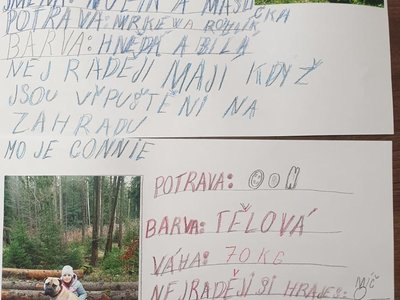 JMÉNA: A
POTRAVA: MRKEWA ROHLÍK
BARVA: HNĚDÁ A BÍLÁ
NEJRADĚJI MAJÍ KDYŽ
JSOU VIPUŠTĚNI NA
ZAHRADU
MOJE CONNIE
POTRAVA:
BARVA: TĚLOVÁ
VÁHA: 70 KG
NEJRADĚJI SI HRAJE: MÍČ